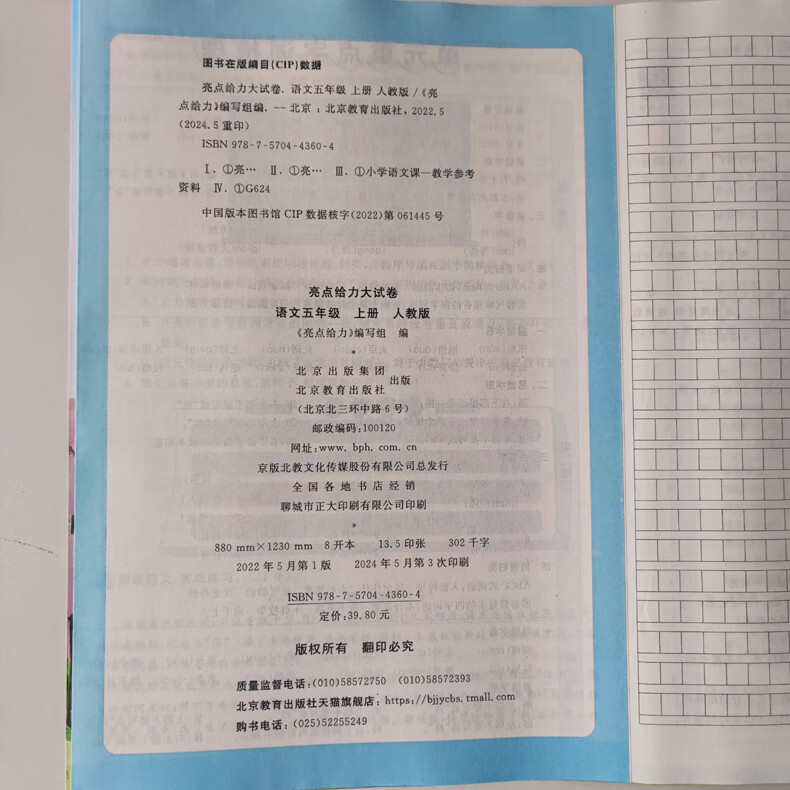 图书在版编目(CIP)数据
亮点给力大试卷. 语文五年级 上册 人教版 /《亮
点给力》编写组编. -- 北京 : 北京教育出版社, 2022.5
(2024.5 重印)
ISBN 978-7-5704-4360-4
Ⅰ. ①亮… Ⅱ. ①亮… Ⅲ. ①小学语文课—教学参考
资料 Ⅳ. ①G624
中国版本图书馆 CIP 数据核字(2022)第 061445 号
亮点给力大试卷
语文五年级 上册 人教版
《亮点给力》编写组 编
*
北京出版集团
北京教育出版社 出版
(北京北三环中路 6 号)
邮政编码:100120
网址:www.bph.com.cn
京版北教文化传媒股份有限公司总发行
全国各地书店经销
聊城市正大印刷有限公司印刷
*
880 mm×1230 mm 8 开本 13.5 印张 302 千字
2022 年 5 月第 1 版 2024 年 5 月第 3 次印刷
ISBN 978-7-5704-4360-4
定价:39.80 元
版权所有 翻印必究
质量监督电话:(010)58572750 (010)58572393
北京教育出版社天猫旗舰店:https://bjjycbs.tmall.com
购书电话:(025)52255249